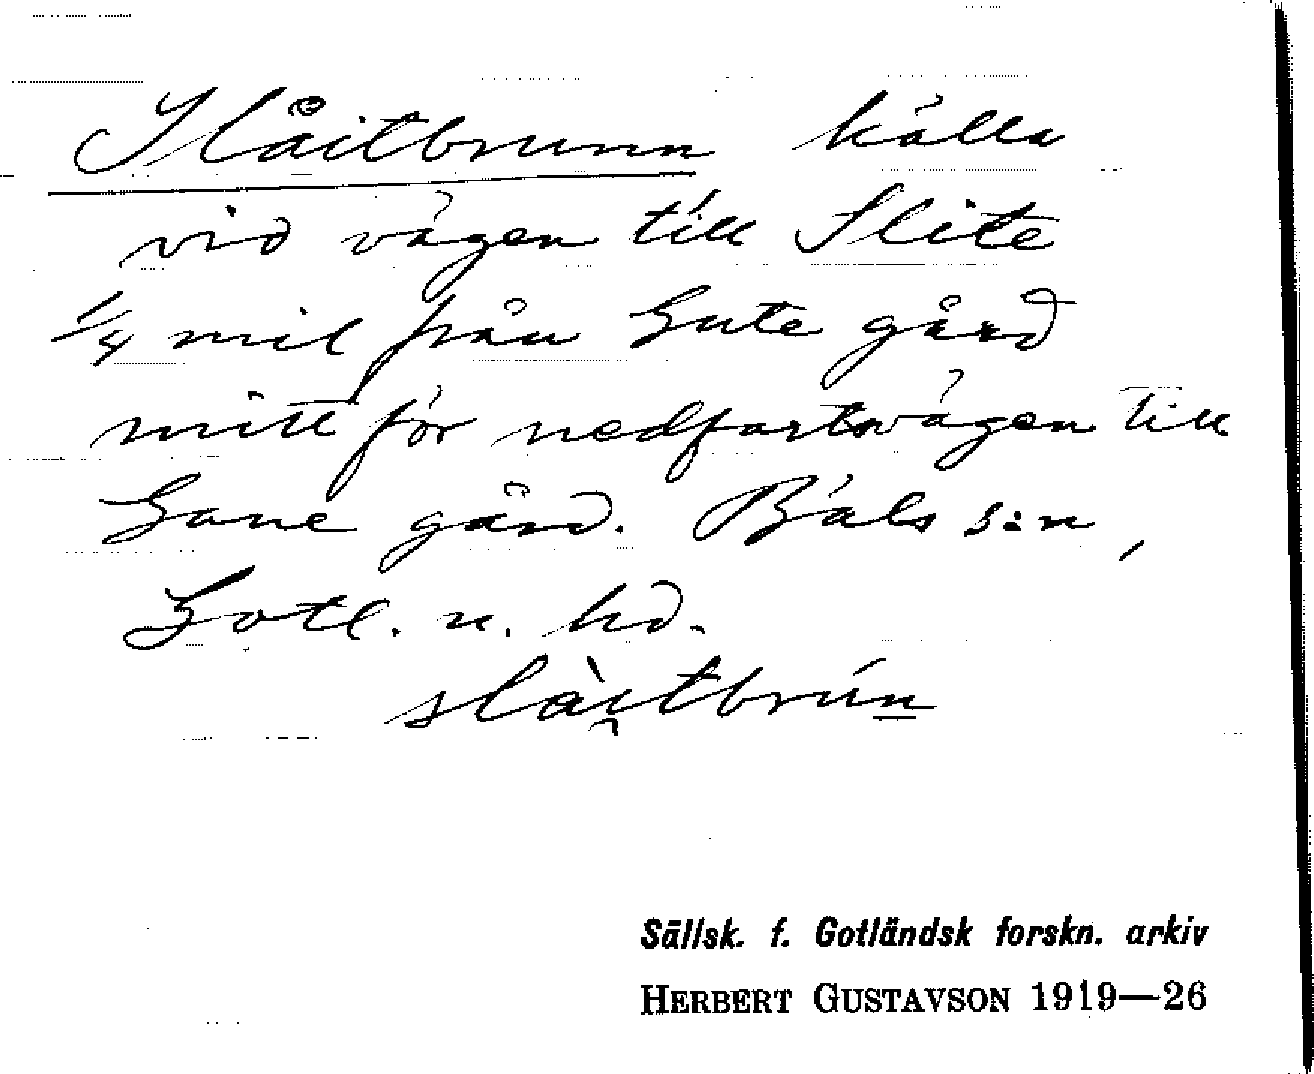 Slåitbrunn källa
vid vägen till Slite
1/4 mil från Gute gård
mitt för nedfartsvägen till
Gane gård. Bäls s:n,
Gotl. n. hd.
slåi̯tbrún
Sällsk. f. Gotländsk forskn. arkiv
HERBERT GUSTAVSON 1919—26